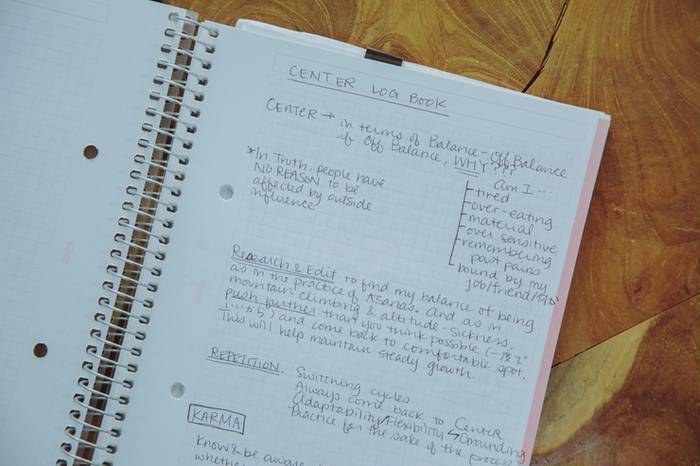 CENTER LOG BOOK
CENTER → in terms of Balance - Off Balance
if Off Balance, WHY???
*In Truth, people have
NO REASON to be
affected by outside
influence
Am I...
tired
over-eating
material
over sensitive
remembering
past pains
bound by my
job/friend/
Research & Edit to find my balance of being
as in the practice of Asanas. And as in
mountain climbing & altitude-sickness,
push further than you think possible
and come back to comfortable spot.
This will help maintain steady growth.
REPETITION. Switching cycles
Always come back to Center
Adaptability/Flexibility Grounding
Practice for the sake of the process
KARMA
Know & be aware
whether